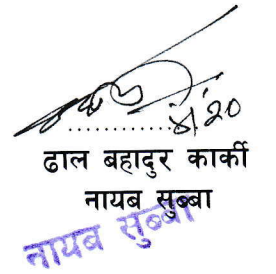 ढाल बहादुर कार्की
नायब सुब्बा
नायब सुब्बा